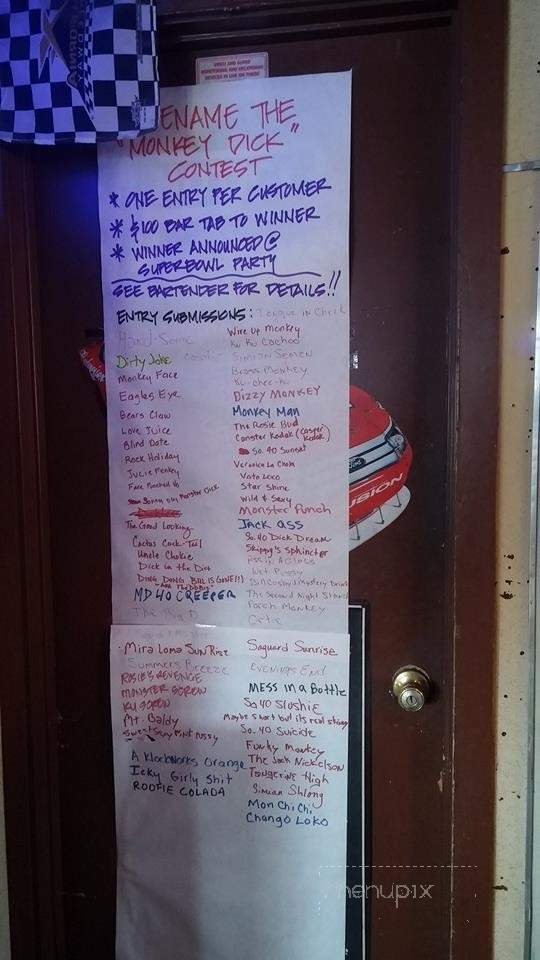 VIDEO AND AUDIO
MONITORING AND RECORDING
DEVICES IN USE ON THESE
RENAME THE
"MONKEY DICK"
CONTEST
* ONE ENTRY PER CUSTOMER
* $100 BAR TAB TO WINNER
* WINNER ANNOUNCED @
SUPERBOWL PARTY
SEE BARTENDER FOR DETAILS!!
ENTRY SUBMISSIONS: Tongue in Cheek
Hand-Some
Dirty Joke
Monkey Face
Eagles Eye
Bears Claw
Love Juice
Blind Date
Rock Holiday
Julie Monkey
Face Punched
The Good Looking
Cactus Cock-Tail
Uncle Chokie
Dick in the Dirt
DING DONG BILL IS GONE!!)
MD 40 CREEPER
The Big D
Wire up Monkey
Ku Ku Cachoo
Simian Semen
Brass Monkey
Ku-chee-Ku
DIZZY MONKEY
Monkey Man
The Rosie Bud
Canster Kodak (Casper Kodak)
So. 40 Sunset
Veronica La Chola
Vato Loco
Star Shine
Wild & Sexy
Monster Punch
Jack ass
So. 40 Dick Dream
Skippy's Sphincter
Piss in A Glass
Wet Pussy
Bill Cosby Mystery Drink
The Second Night Stand
Porch Monkey
Mira Loma Sun Rise
Summers Breeze
ROSIE'S REVENGE
MONSTER SCREW
KU SCREW
Mt. Baldy
A Klockworks Orange
Icky Girly Shit
ROOFIE COLADA
Saguard Sunrise
Evenings End
MESS in a Bottle
So 40 Slushie
Maybe short but its real skinny
So. 40 Suicide
Funky Monkey
The Jack Nickelson
Tangerine High
Simian Shlong
Mon Chi Chi
Chango Loko
FUSION
menupix